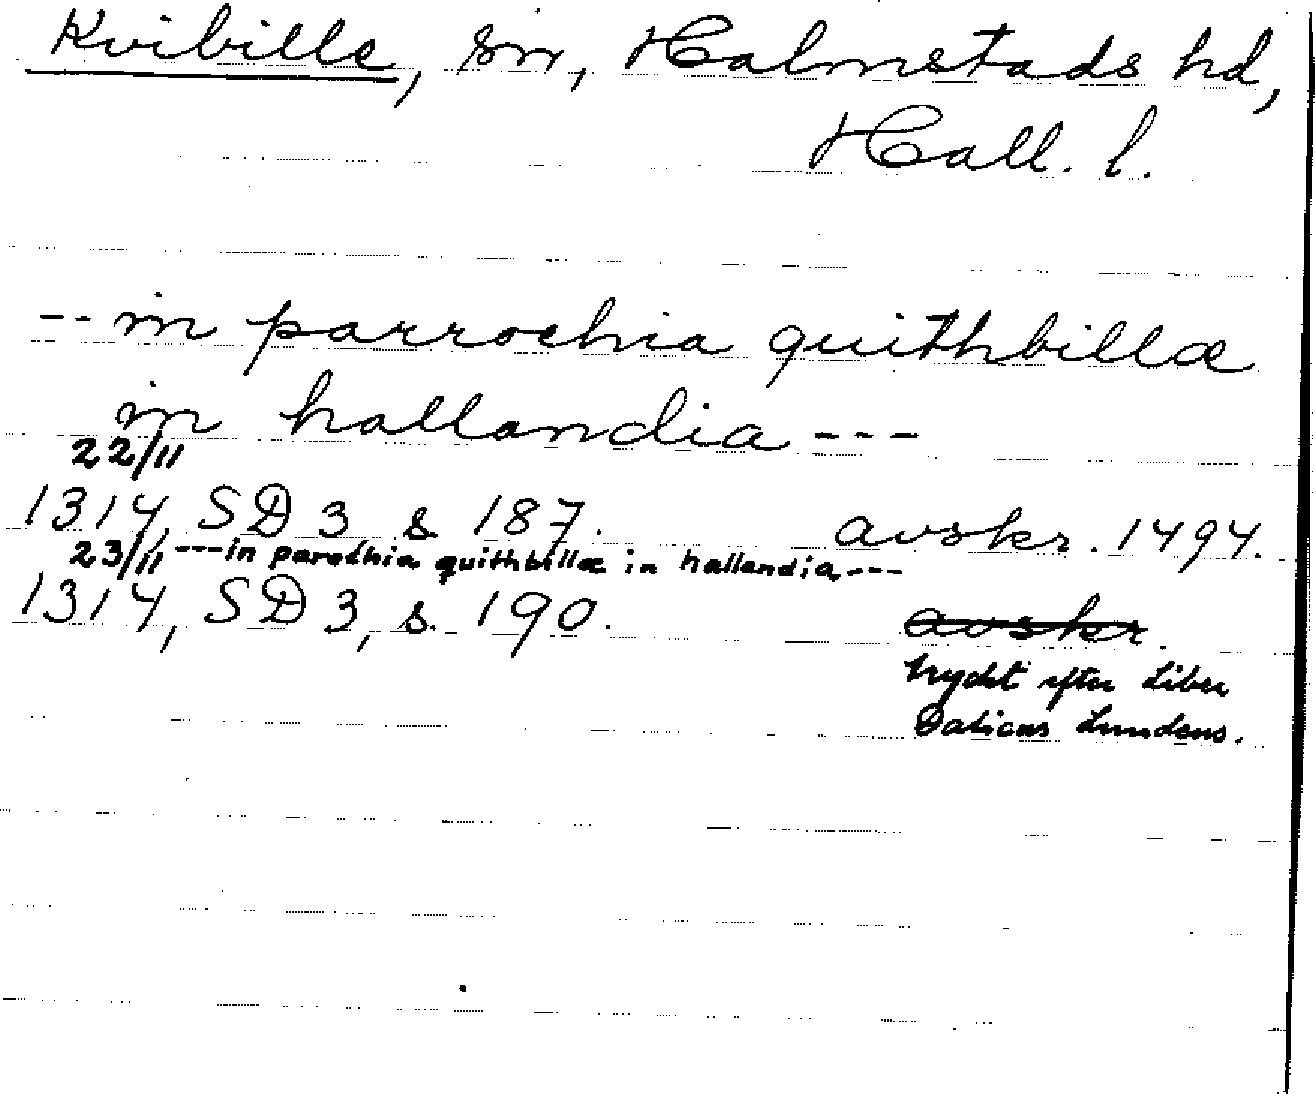 Kvibille, sn, Halmstads hd,
Hall. l.
-- in parrochia quithbillæ
in hallandia ---
22/11
1314, SD 3 s 187. avskr. 1494.
23/11 --- in parochia quithbillæ in hallandia ---
1314, SD 3, s. 190. avskr.
tryckt efter Liber
Daticus Lundens.